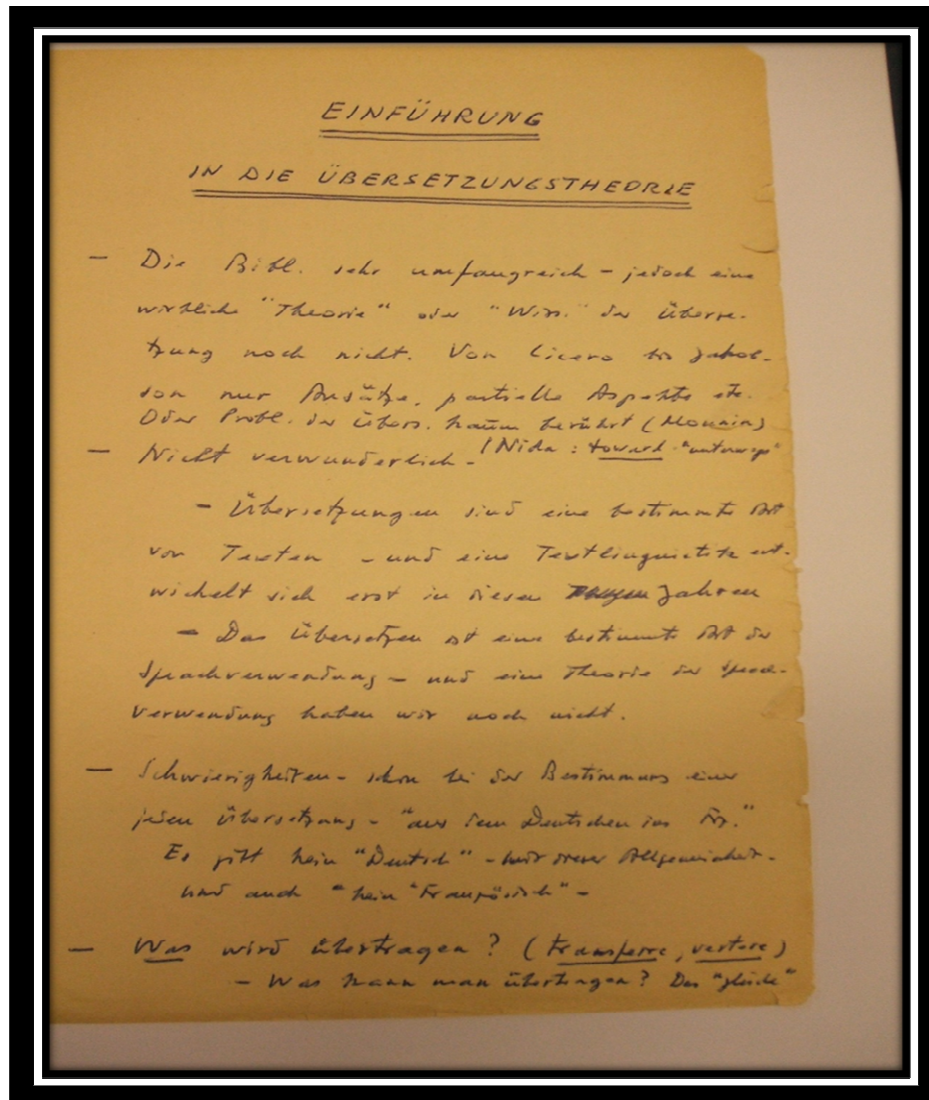 EINFÜHRUNG
IN DIE ÜBERSETZUNGSTHEORIE
– Die Bibl. sehr umfangreich – jedoch eine
wirkliche "Theorie" oder "Wiss." der Überse-
tzung noch nicht. Von Cicero bis Jakob-
son nur Ansätze, partielle Aspekte etc.
Oder Probl. der Übers. kaum berührt (Mounin)
– Nicht verwunderlich –
(Nida: toward "unterwegs"
– Übersetzungen sind eine bestimmte Art
von Texten – und eine Textlinguistik ent-
wickelt sich erst in diesen Jahren
– Das Übersetzen ist eine bestimmte Art der
Sprachverwendung – und eine Theorie der Sprach-
verwendung haben wir noch nicht.
– Schwierigkeiten – schon bei der Bestimmung einer
jeden Übersetzung – "aus dem Deutschen ins Frz."
Es gibt kein "Deutsch" – mit dieser Allgemeinheit –
und auch kein "Französisch" –
– Was wird übertragen? (transferre, vertere)
– Was kann man übertragen? Das "gleiche"